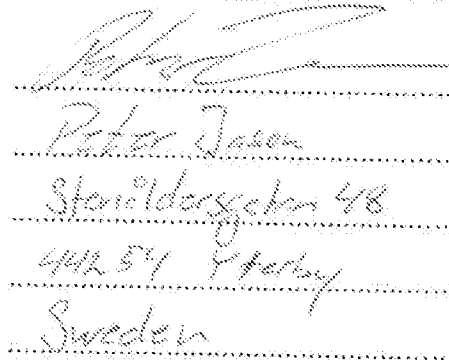 Peter Jason
Stenåldersgatan 48
442 54 Ytterby
Sweden